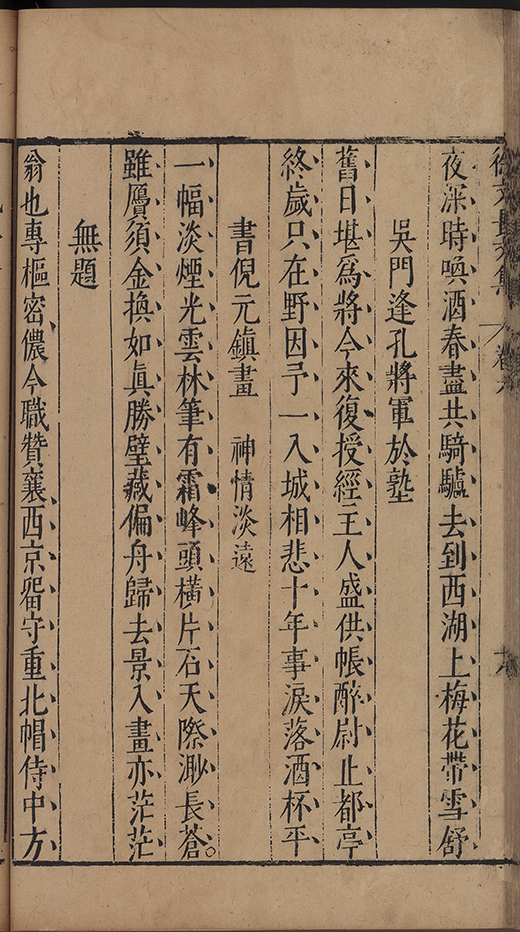 徐文長文集 卷六
夜深時喚酒春盡共騎驢去到西湖上梅花帶雪舒
吳門逢孔將軍於塾
舊日堪爲將今來復授經主人盛供帳醉尉止都亭
終歲只在野因予一入城相悲十年事淚落酒杯平
書倪元鎮畫 神情淡遠
一幅淡煙光雲林筆有霜峰頭橫片石天際渺長蒼
雖贗須金換如眞勝璧藏偏舟歸去景入畫亦茫茫
無題
翁也專樞密儂今職贊襄西京畱守重北帽侍中方